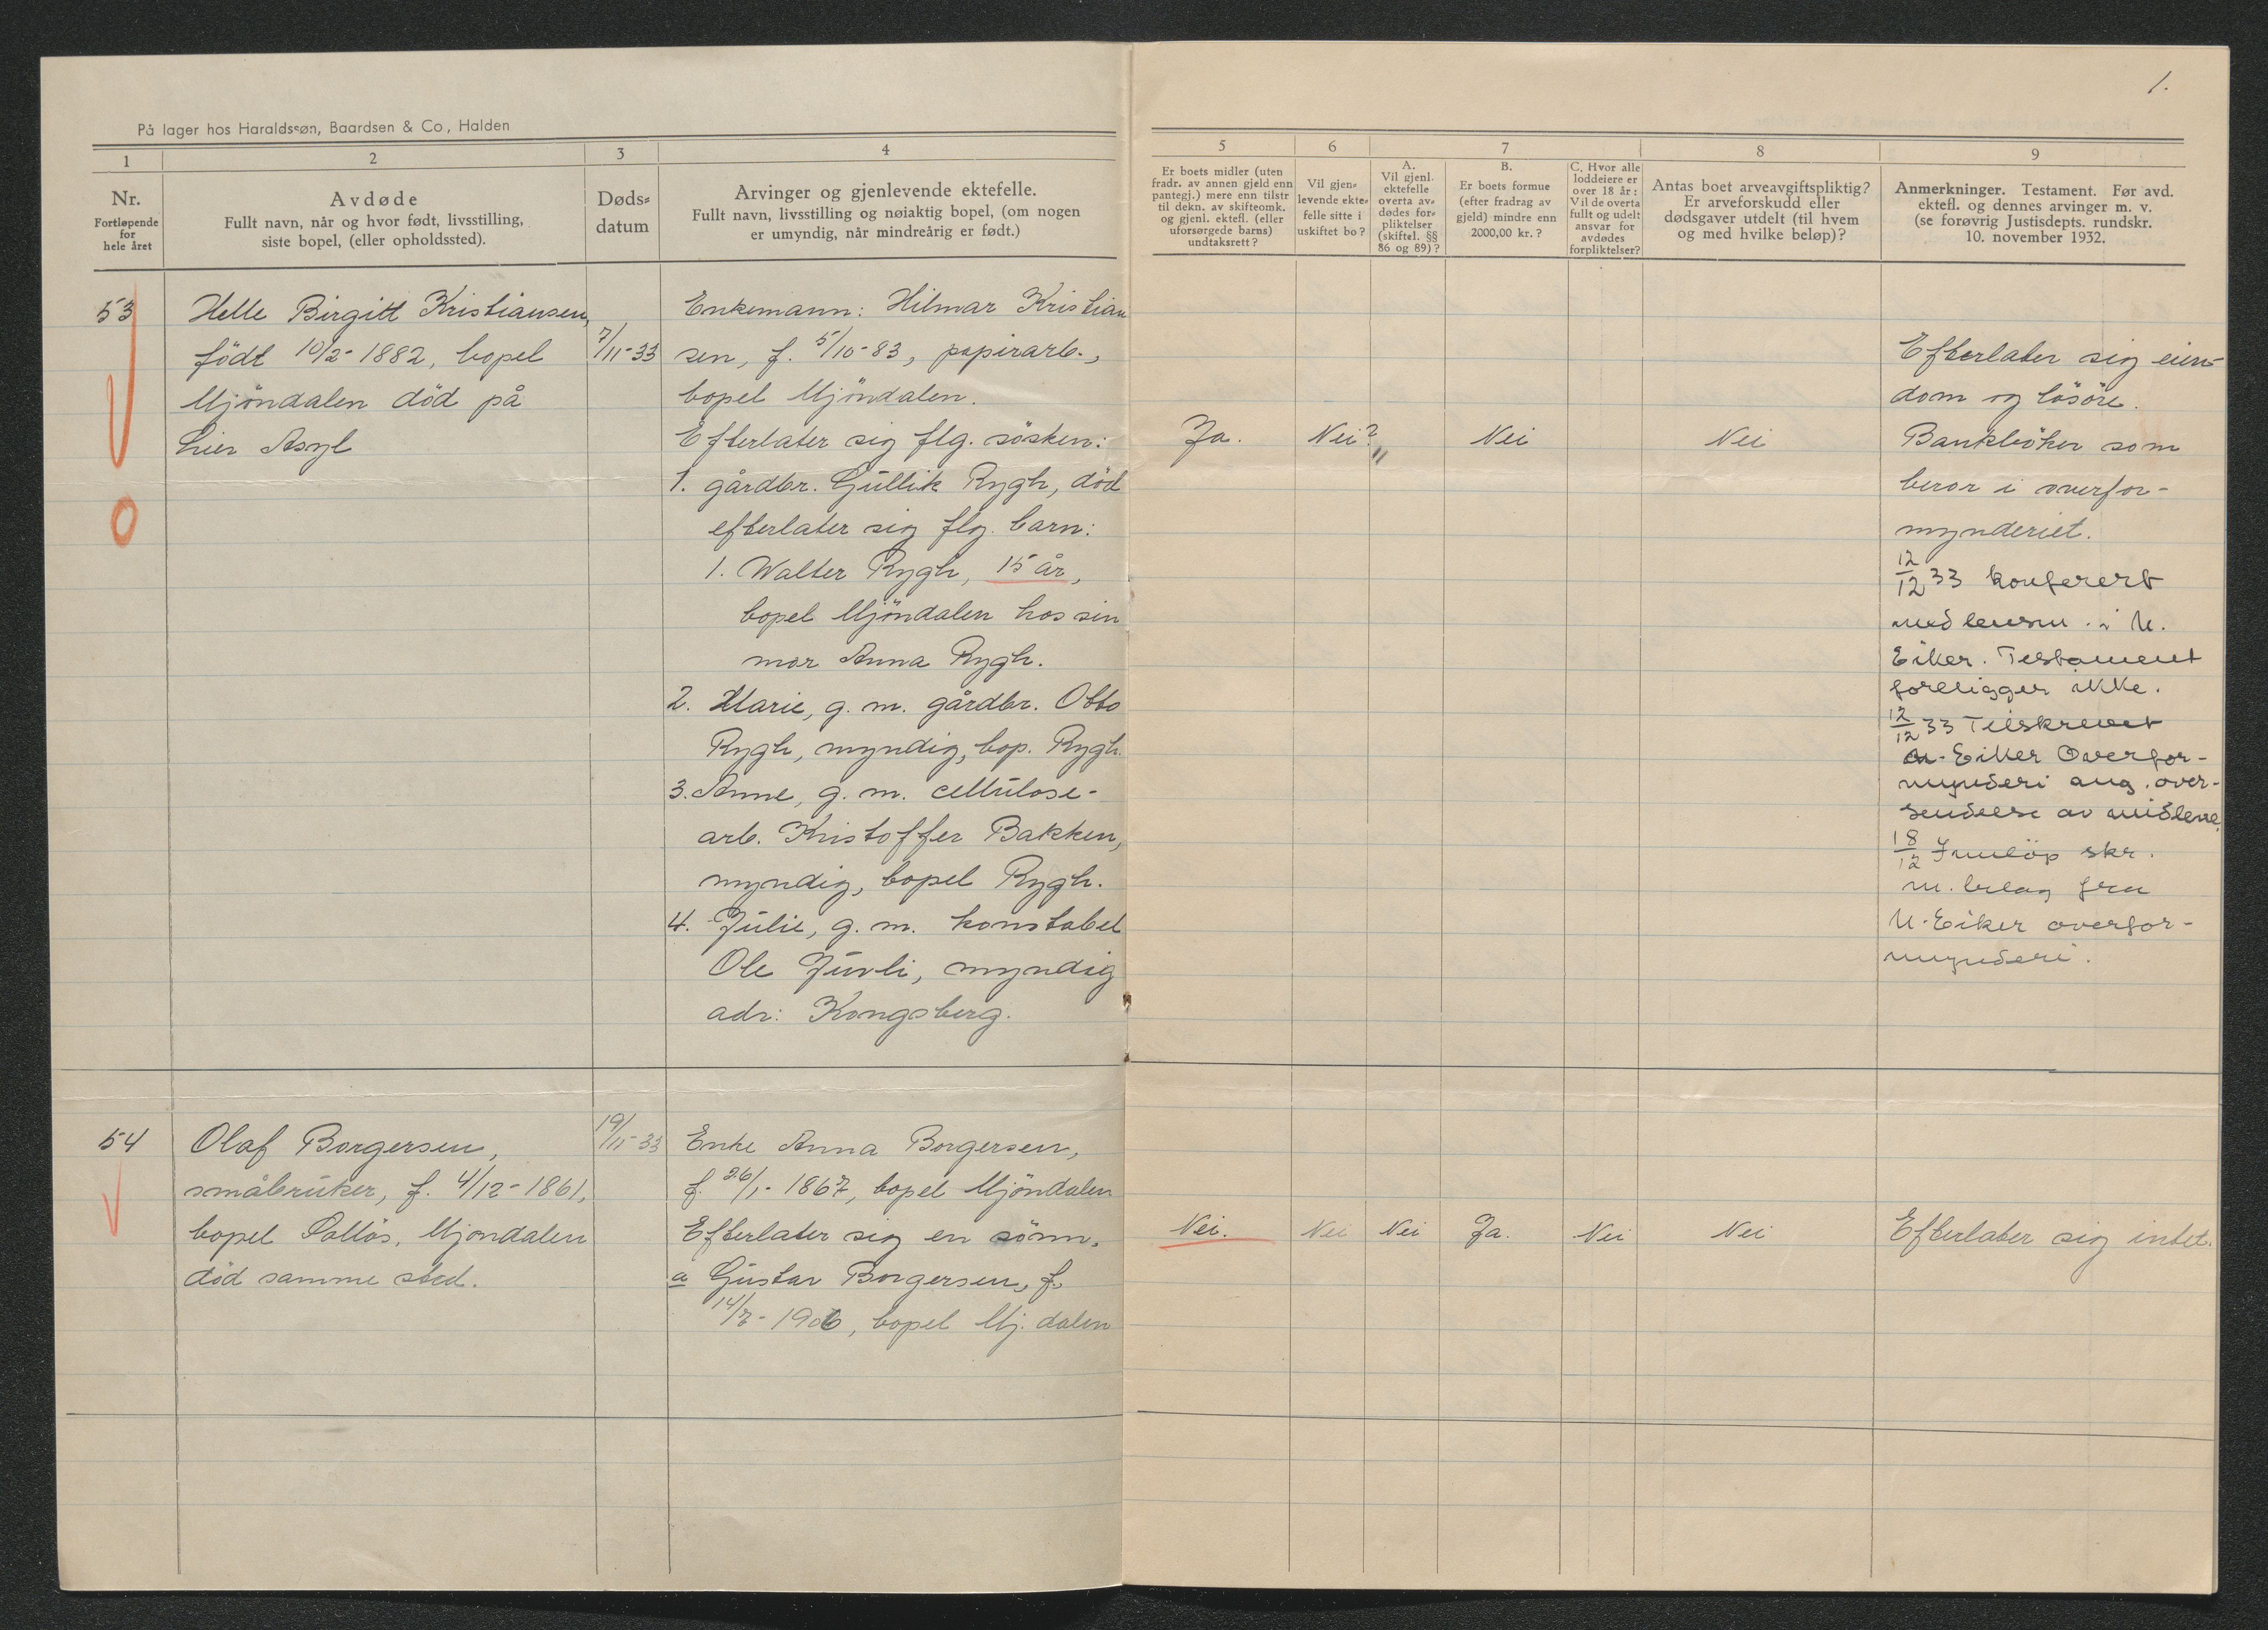 1.
På lager hos Haraldssøn, Baardsen & Co, Halden
1
2
3
4
5
6
7
8
9
Nr.
Fortløpende
for
hele året
Avdøde
Fullt navn, når og hvor født, livsstilling,
siste bopel, (eller opholdssted).
Døds-
datum
Arvinger og gjenlevende ektefelle.
Fullt navn, livsstilling og nøiaktig bopel, (om nogen
er umyndig, når mindreårig er født.)
Er boets midler (uten
fradr. av annen gjeld enn
pantegj.) mere enn tilstr
til dekn. av skifteomk.
og gjenl. ektefl. (eller
uforsørgede barns)
undtaksrett?
Vil gjen-
levende ekte-
felle sitte i
uskiftet bo?
A.
Vil gjenl.
ektefelle
overta av-
dødes for-
pliktelser
(skiftel. §§
86 og 89)?
B.
Er boets formue
(efter fradrag av
gjeld) mindre enn
2000,00 kr.?
C. Hvor alle
loddeiere er
over 18 år:
Vil de overta
fullt og udelt
ansvar for
avdødes
forpliktelser?
Antas boet arveavgiftspliktig?
Er arveforskudd eller
dødsgaver utdelt (til hvem
og med hvilke beløp)?
Anmerkninger. Testament. Før avd.
ektefl. og dennes arvinger m. v.
(se forøvrig Justisdepts. rundskr.
10. november 1932.
53
Helle Birgitt Kristiansen,
födt 10/2-1882, bopel
Mjöndalen död på
Lier Asyl
7/11-33
Enkemann: Hilmar Kristian
sen, f. 5/10-83, papirarb.,
bopel Mjöndalen.
Efterlater sig flg. sösken:
1. gårdbr. Gullik Rygh, död
efterlater sig flg. barn:
1. Walter Rygh, 15 år,
bopel Mjöndalen hos sin
mor Anna Rygh.
2. Marie, g. m. gårdbr. Otto
Rygh, myndig, bop. Rygh.
3. Anne, g. m. cellulose-
arb. Kristoffer Bakken,
myndig, bopel Rygh.
4. Julie, g. m. konstabel
Ole Juvli, myndig
adr: Kongsberg.
Ja.
Nei?
"
Nei
Nei
Efterlater sig eien-
dom og lösöre.
Bankböker som
beror i overfor-
mynderiet.
12/12 33 konferert
med lensm. i N.
Eiker. Testament
foreligger ikke.
12/12 33 Tilskrevet
N. Eiker Overfor-
mynderi ang. over-
sendelse av midlene.
18/12 Innløp skr.
m. bilag fra
N. Eiker overfor-
mynderi.
54
Olaf Borgersen,
småbruker, f. 4/12-1861,
bopel Mjöndalen
död samme sted.
19/11-33
Enke Anna Borgersen,
f. 26/1-1867, bopel Mjöndalen
Efterlater sig en sönn.
a Gustav Borgersen, f.
14/7-1906, bopel Mj.dalen
Nei.
Nei
Nei
Ja.
Nei
Nei
Efterlater sig intet.